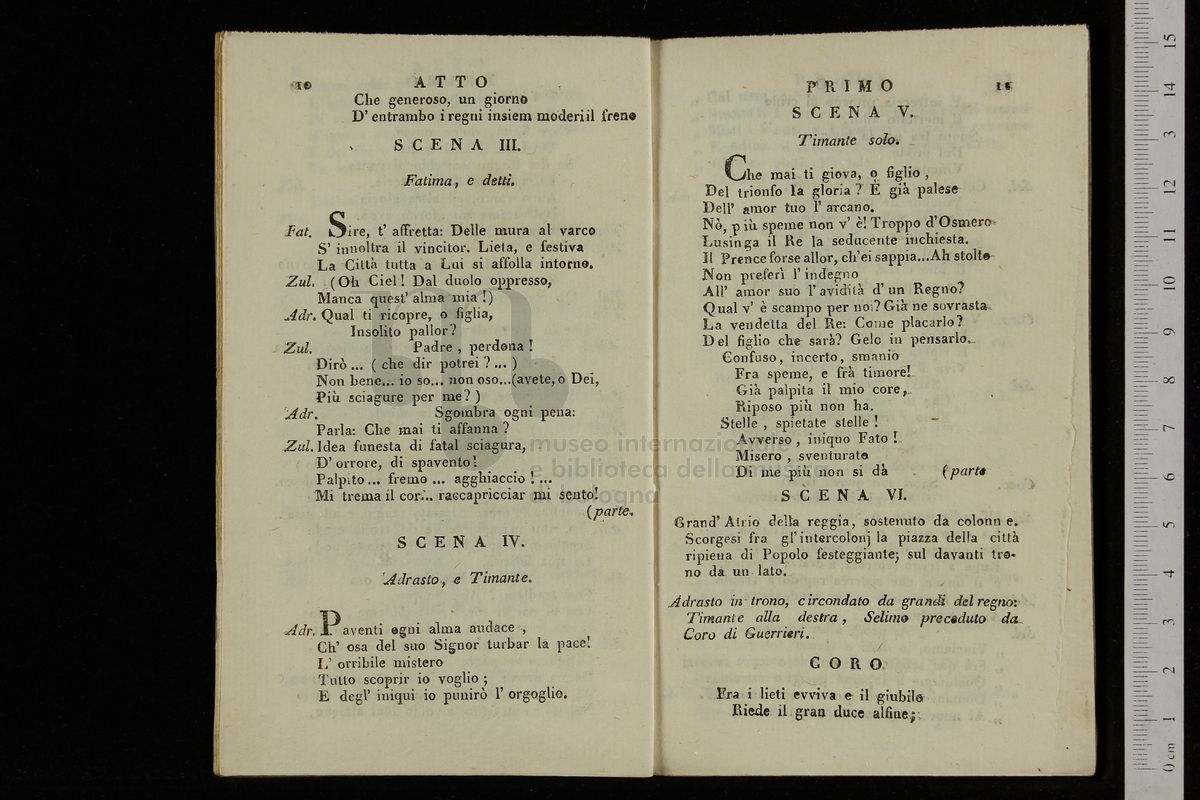 10 ATTO
Che generoso, un giorno
D' entrambo i regni insiem moderi il freno
SCENA III.
Fatima, e detti.
Fat. Sire, t' affretta: Delle mura al varco
S' innoltra il vincitor. Lieta, e festiva
La Città tutta a Lui si affolla intorno.
Zul. (Oh Ciel! Dal duolo oppresso,
Manca quest' alma mia!)
Adr. Qual ti ricopre, o figlia,
Insolito pallor?
Zul. Padre, perdona!
Dirò ... ( che dir potrei ? ... )
Non bene... io so... non oso...(avete, o Dei,
Più sciagure per me? )
Adr. Sgombra ogni pena:
Parla: Che mai ti affanna ?
Zul. Idea funesta di fatal sciagura,
D' orrore, di spavento!
Palpito ... fremo ... agghiaccio ! ...
Mi trema il cor... raccapricciar mi sento!
(parte.
SCENA IV.
Adrasto, e Timante.
Adr. Paventi ogni alma audace ,
Ch' osa del suo Signor turbar la pace!
L' orribile mistero
Tutto scoprir io voglio ;
E degl' iniqui io punirò l' orgoglio.
PRIMO 11
SCENA V.
Timante solo.
Che mai ti giova, o figlio ,
Del trionfo la gloria ? È già palese
Dell' amor tuo l' arcano.
Nò, p iù speme non v' è! Troppo d'Osmero
Lusinga il Re la seducente inchiesta.
Il Prence forse allor, ch'ei sappia...Ah stolto
Non preferì l' indegno
All' amor suo l' avidità d' un Regno?
Qual v' è scampo per noi? Già ne sovrasta
La vendetta del Re: Come placarlo?
Del figlio che sarà? Gelo in pensarlo.
Confuso, incerto, smanio
Fra speme, e frà timore!
Già palpita il mio core,
Riposo più non ha.
Stelle , spietate stelle !
Avverso , iniquo Fato !
Misero , sventurato
Di me più non si dà (parte
SCENA VI.
Grand' Atrio della reggia, sostenuto da colonn e.
Scorgesi fra gl' intercolonj la piazza della città
ripiena di Popolo festeggiante; sul davanti tro-
no da un lato.
Adrasto in trono, circondato da grandi del regno:
Timante alla destra , Selimo preceduto da
Coro di Guerrieri.
CORO.
Fra i lieti evviva e il giubilo
Riede il gran duce alfine;
museo internazionale
e biblioteca della musica
di bologna
0 cm 1 2 3 4 5 6 7 8 9 10 11 12 13 14 15